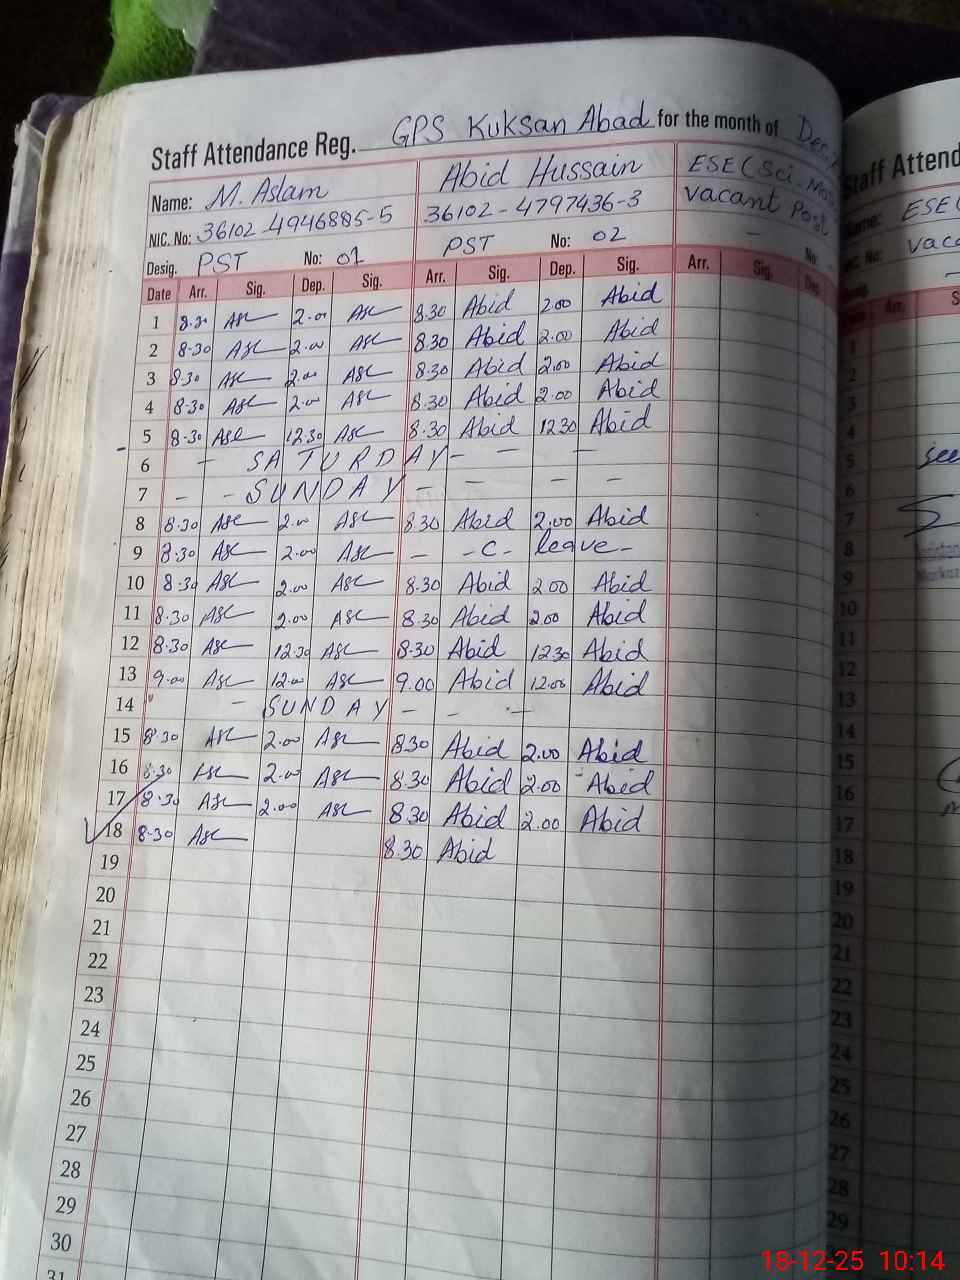 Staff Attendance Reg. GPS Kuksan Abad for the month of Dec.
Name: M. Aslam Abid Hussain ESE (Sci-Mat
NIC. No: 36102-4946885-5 36102-4797436-3 vacant Post
Desig. PST No: 01 PST No: 02 - No:
Date Arr. Sig. Dep. Sig. Arr. Sig. Dep. Sig. Arr. Sig. Dep.
1 8.30 2.00 8.30 Abid 2.00 Abid
2 8.30 2.00 8.30 Abid 2.00 Abid
3 8.30 2.00 8.30 Abid 2.00 Abid
4 8.30 2.00 8.30 Abid 2.00 Abid
5 8.30 12.30 8.30 Abid 12.30 Abid
6 - SATURDAY - - -
7 - - SUNDAY - - - -
8 8.30 2.00 8.30 Abid 2.00 Abid
9 8.30 2.00 - - C - leave -
10 8.30 2.00 8.30 Abid 2.00 Abid
11 8.30 2.00 8.30 Abid 2.00 Abid
12 8.30 12.30 8.30 Abid 12.30 Abid
13 9.00 12.00 9.00 Abid 12.00 Abid
14 - SUNDAY - - -
15 8.30 2.00 8.30 Abid 2.00 Abid
16 8.30 2.00 8.30 Abid 2.00 Abid
17 8.30 2.00 8.30 Abid 2.00 Abid
18 8.30 8.30 Abid
19
20
21
22
23
24
25
26
27
28
29
30
31
Staff Attend
Name: ESE (
No: vaca
Arr. S
1
2
3
4
5 see
6
7
8
9
10
11
12
13
14
15
16
17
18
19
20
21
22
23
24
25
26
27
28
29
18-12-25 10:14